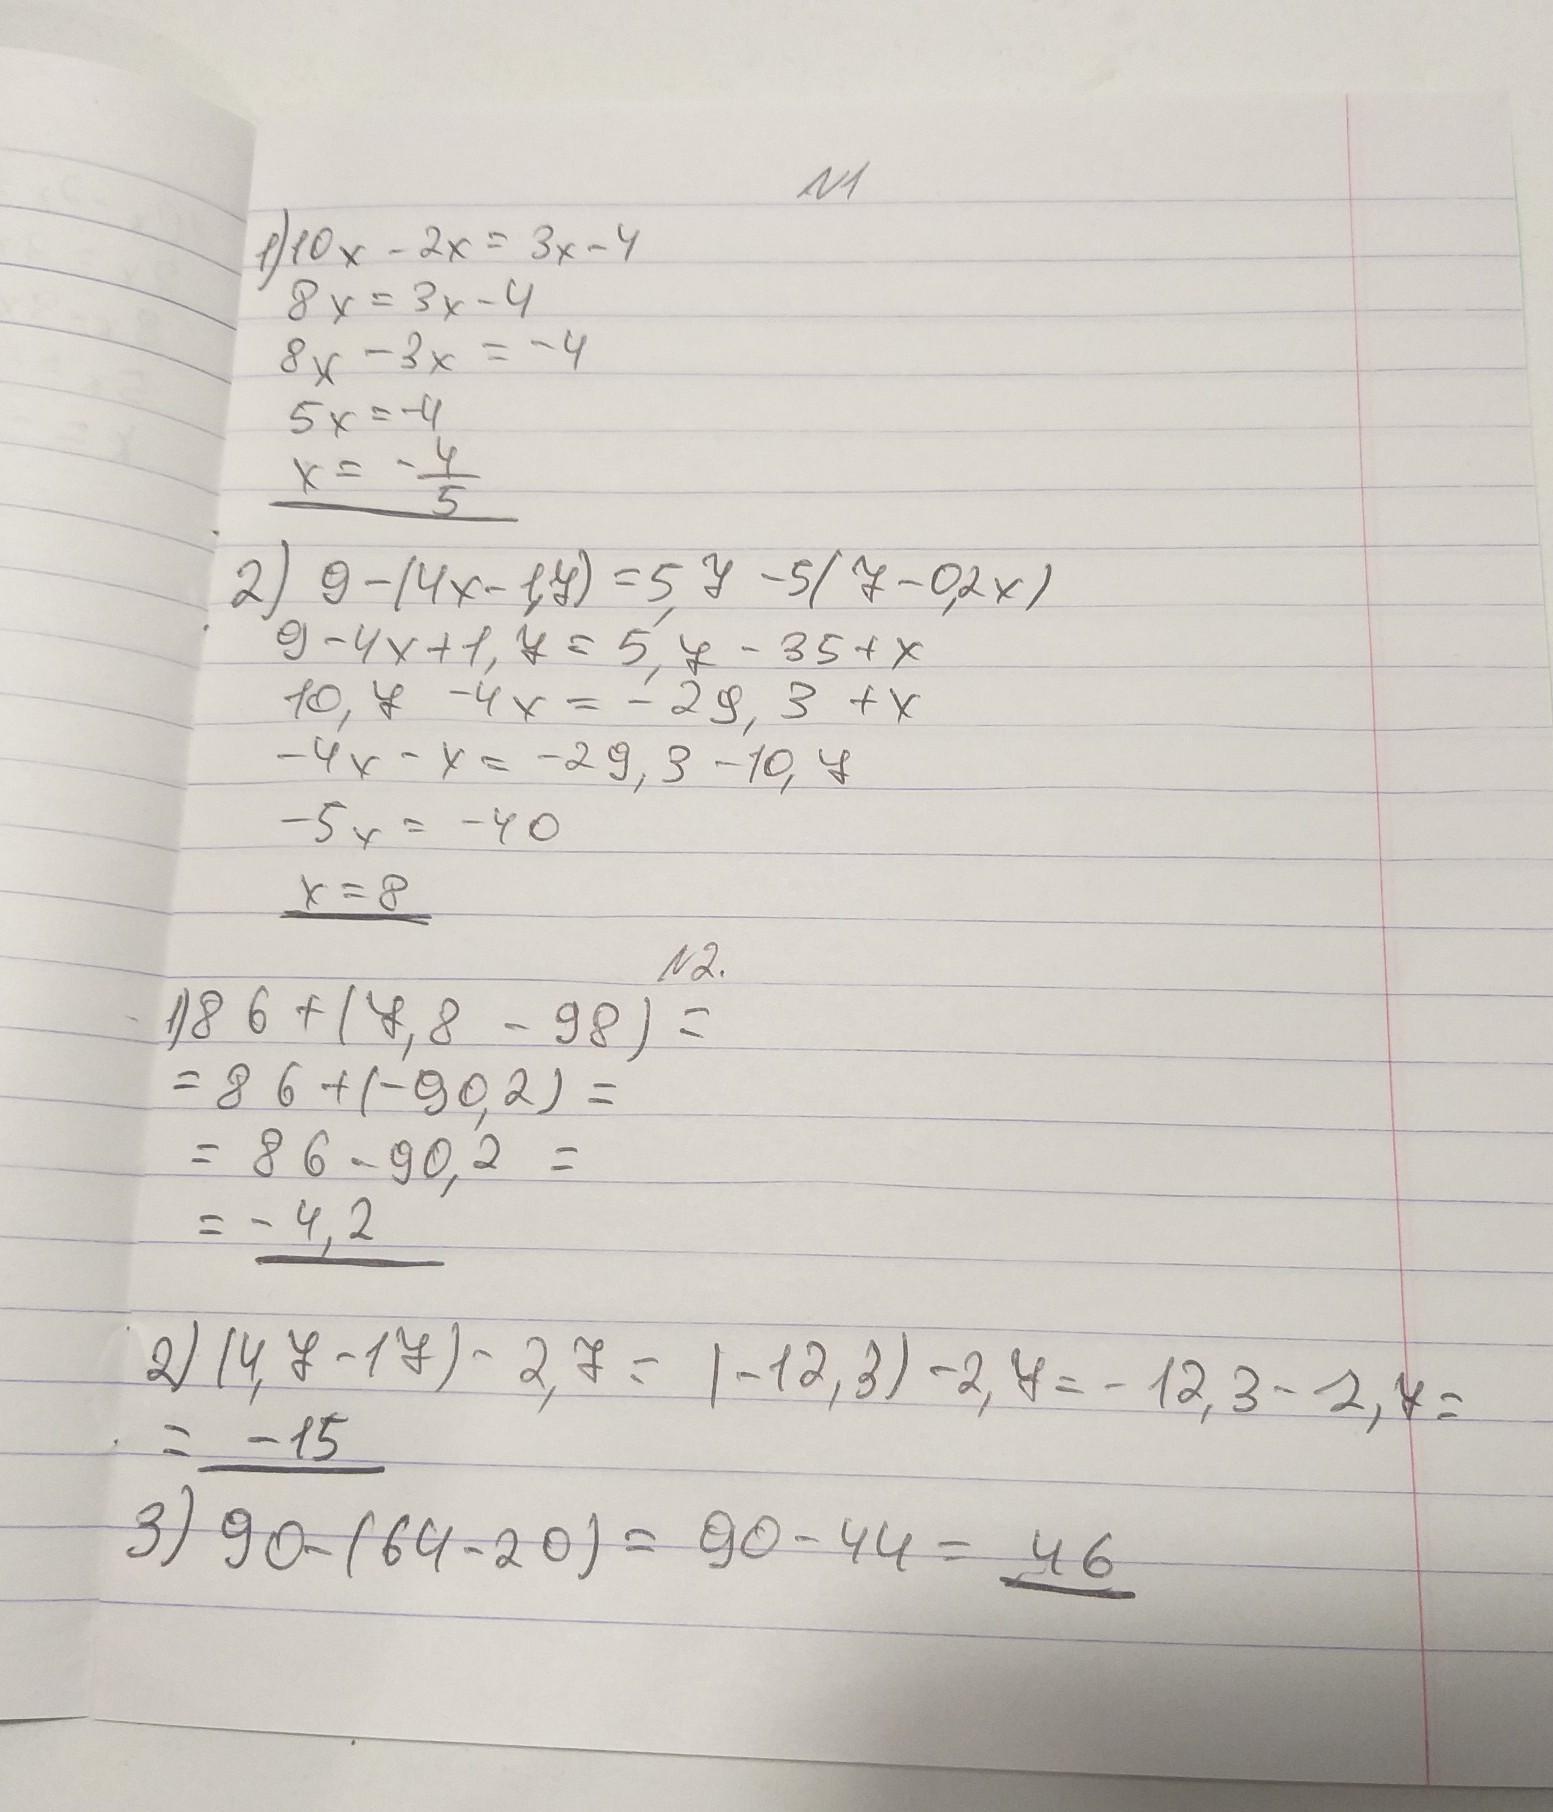 N1
1) 10x - 2x = 3x - 4
8x = 3x - 4
8x - 3x = -4
5x = -4
x = -4/5
2) 9 - (4x - 1,7) = 5,7 - 5(7 - 0,2x)
9 - 4x + 1,7 = 5,7 - 35 + x
10,7 - 4x = -29,3 + x
-4x - x = -29,3 - 10,7
-5x = -40
x = 8
N2.
1) 86 + (7,8 - 98) =
= 86 + (-90,2) =
= 86 - 90,2 =
= -4,2
2) (4,7 - 17) - 2,7 = (-12,3) - 2,7 = -12,3 - 2,7 =
= -15
3) 90 - (64 - 20) = 90 - 44 = 46